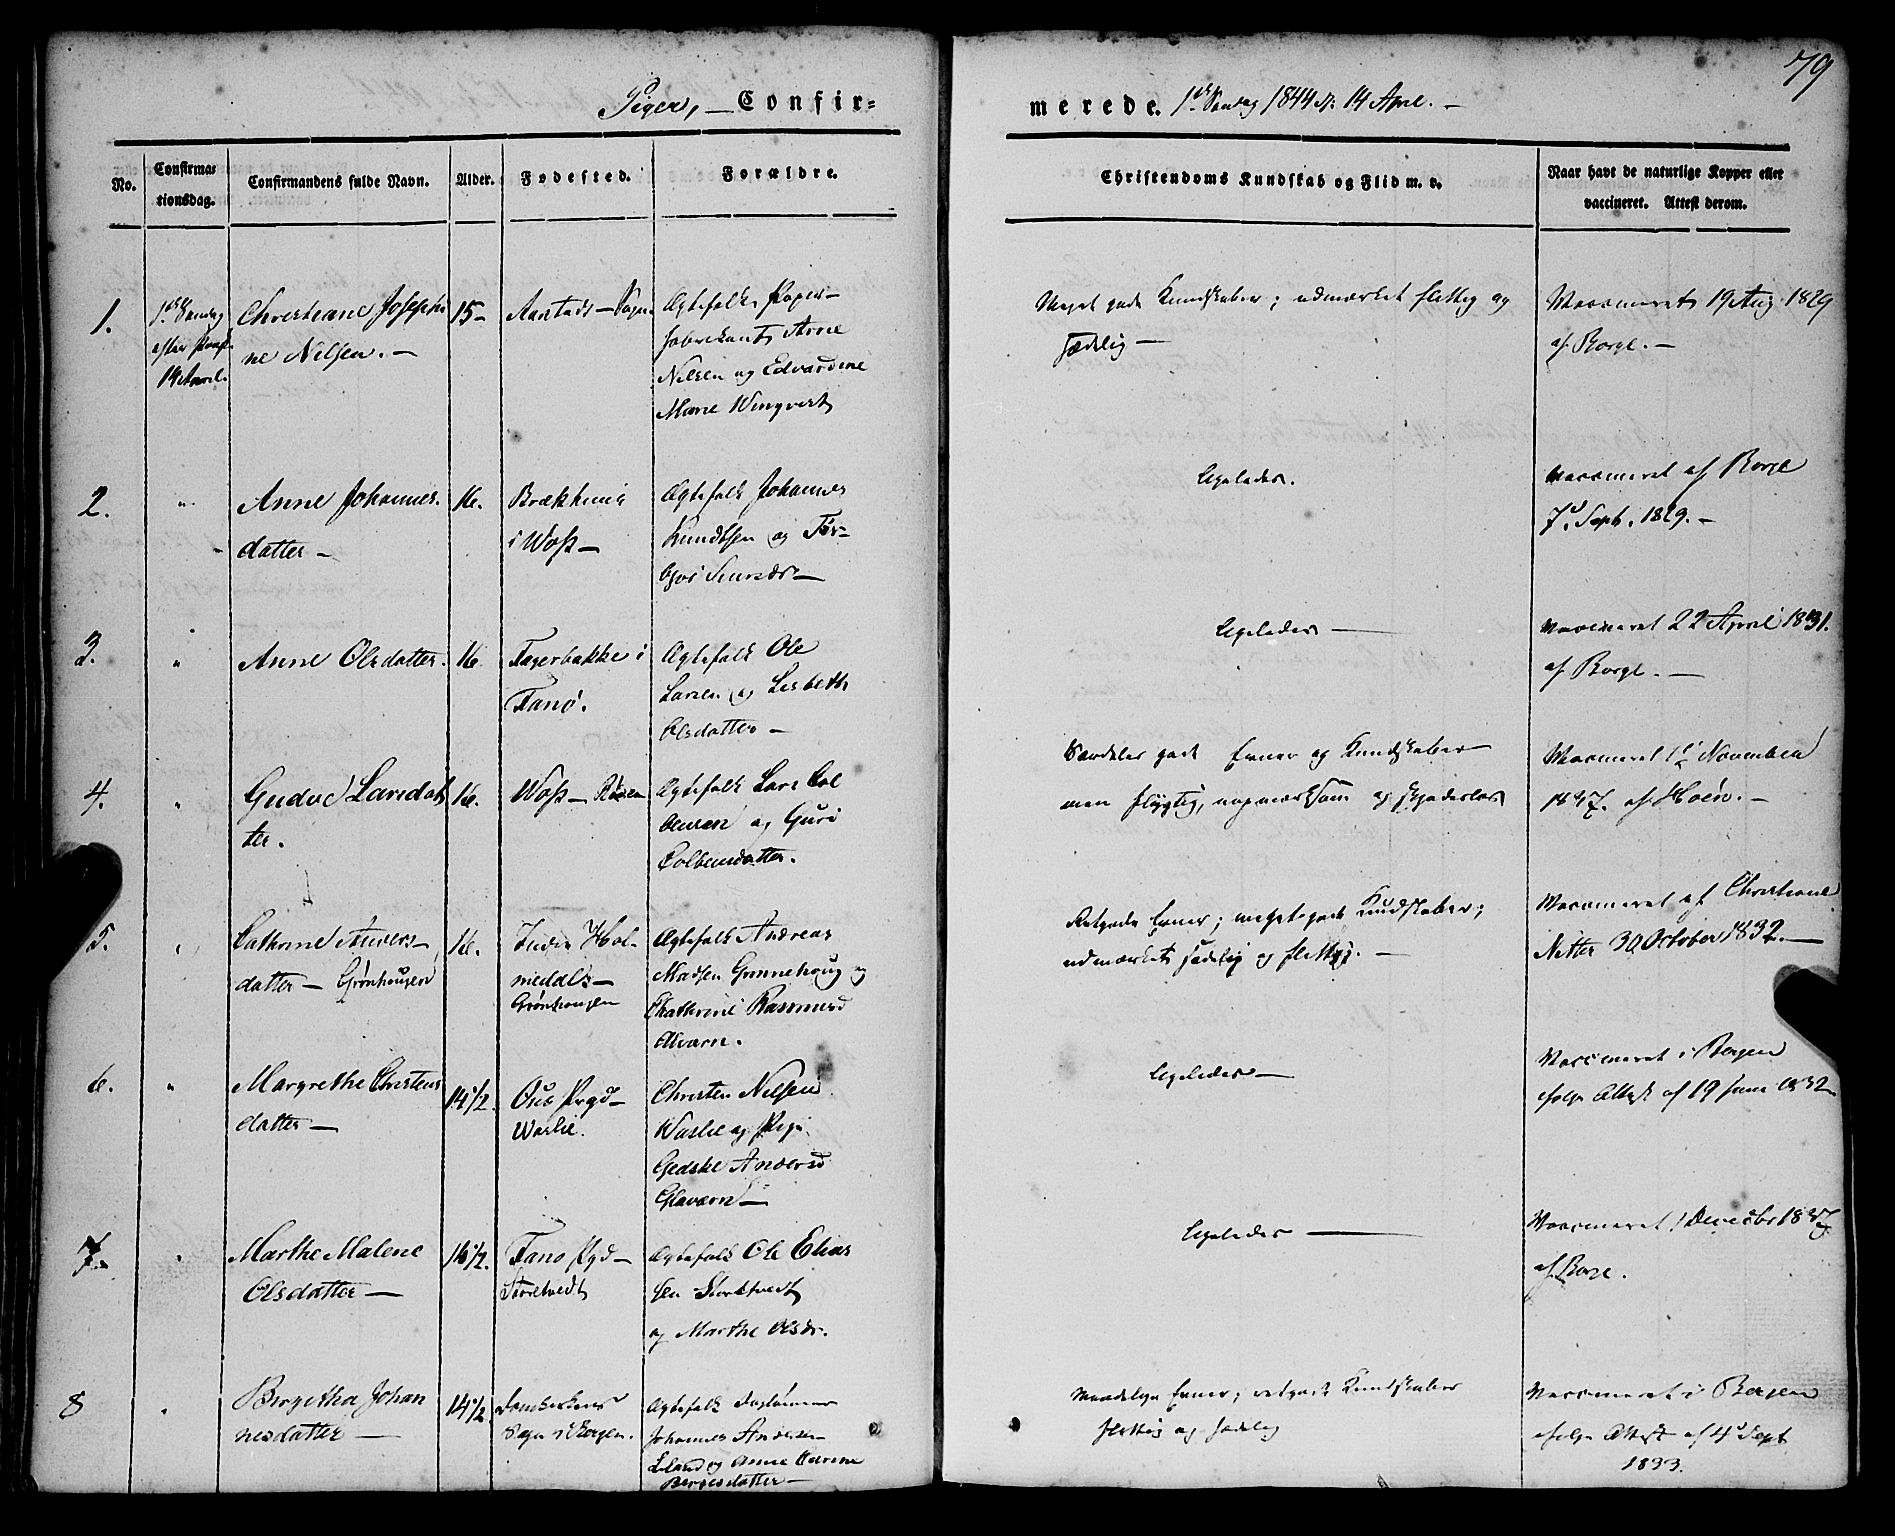 79
Piger, — Confir-
merede. 1ste Søndag 1844 14 April. —
No.
Confirma-
tionsdag.
Confirmandens fulde Navn.
Alder.
Fødested.
Forældre.
Christendoms Kundskab og Flid m. v.
Naar havt de naturlige Kopper eller
vaccineret. Attest derom.
1.
1ste Søndag
efter Paask.
14 April.
Christiane Josephi
ne Nilsen. —
15 —
Aarstads — Sogn.
Ægtefolk Papir-
fabrikant Arne
Nilsen og Edvardine
Marie Wingvert
Meget gode Kundskaber; udmærket flittig og
sædelig —
Vaccineret 19 Aug 1829
af Borge. —
2.
"
Anne Johannes-
datter —
16.
Brækhuus
i Woss —
Ægtefolk Johannes
Knudtsen og Tor-
Ligeledes.
Vaccineret af Borge
7d Sept. 1829. —
3.
"
Anne Olsdatter.
16.
Fagerbakke i
Fanø.
Ægtefolk Ole
Larsen og Lisbeth
Olsdatter —
Ligeledes —
Vaccineret 22 April 1831.
af Borge. —
4.
"
Gudve Larsdat
ter.
16.
Woss —
Ægtefolk Lars Col
bensen og Guri
Colbensdatter.
Særdeles gode Evner og Kundskaber
men flygtig, uopmærksom og
Vaccineret 1ste November
1837. af Hoën. —
5.
"
Cathrine Anders-
datter — Grønhougen
16.
Indre Hol-
medals —
Grønhougen
Ægtefolk Andreas
Madsen Grønnehoug og
Chathrine Rasmusd
Alværn.
Retgode Evner; megetgode Kundskaber;
udmærket sædelig og flittig. —
Vaccineret af Christiane
Netter 30 October 1832. —
6.
"
Margrethe Christens
datter —
14 1/2.
Ous Prgd —
Waslie.
Christen Nilsen
Waslie og Pige
Gedske Andersd
Glaværn —
Ligeledes —
Vaccineret i Bergen
ifølge Attest af 19 Juni 1832
7.
"
Marthe Malene
Olsdatter —
16 1/2.
Fanø Pgd —
Storetvedt
Ægtefolk Ole Elias
sen Storetvedt
og Marthe Olsdr.
Ligeledes —
Vaccineret 1 Decebr 1837
af Borge.
8
"
Bergitha Johan
nesdatter —
14 1/2
Domkirkens
Sogn i Bergen.
Ægtefolk
Johannes Andersen
og Anne
Bergesdatter —
Maadelige Evner; retgode Kundskaber
flittig og sædelig
Vaccineret i Bergen
ifølge Attest af 4d Sept
1833.